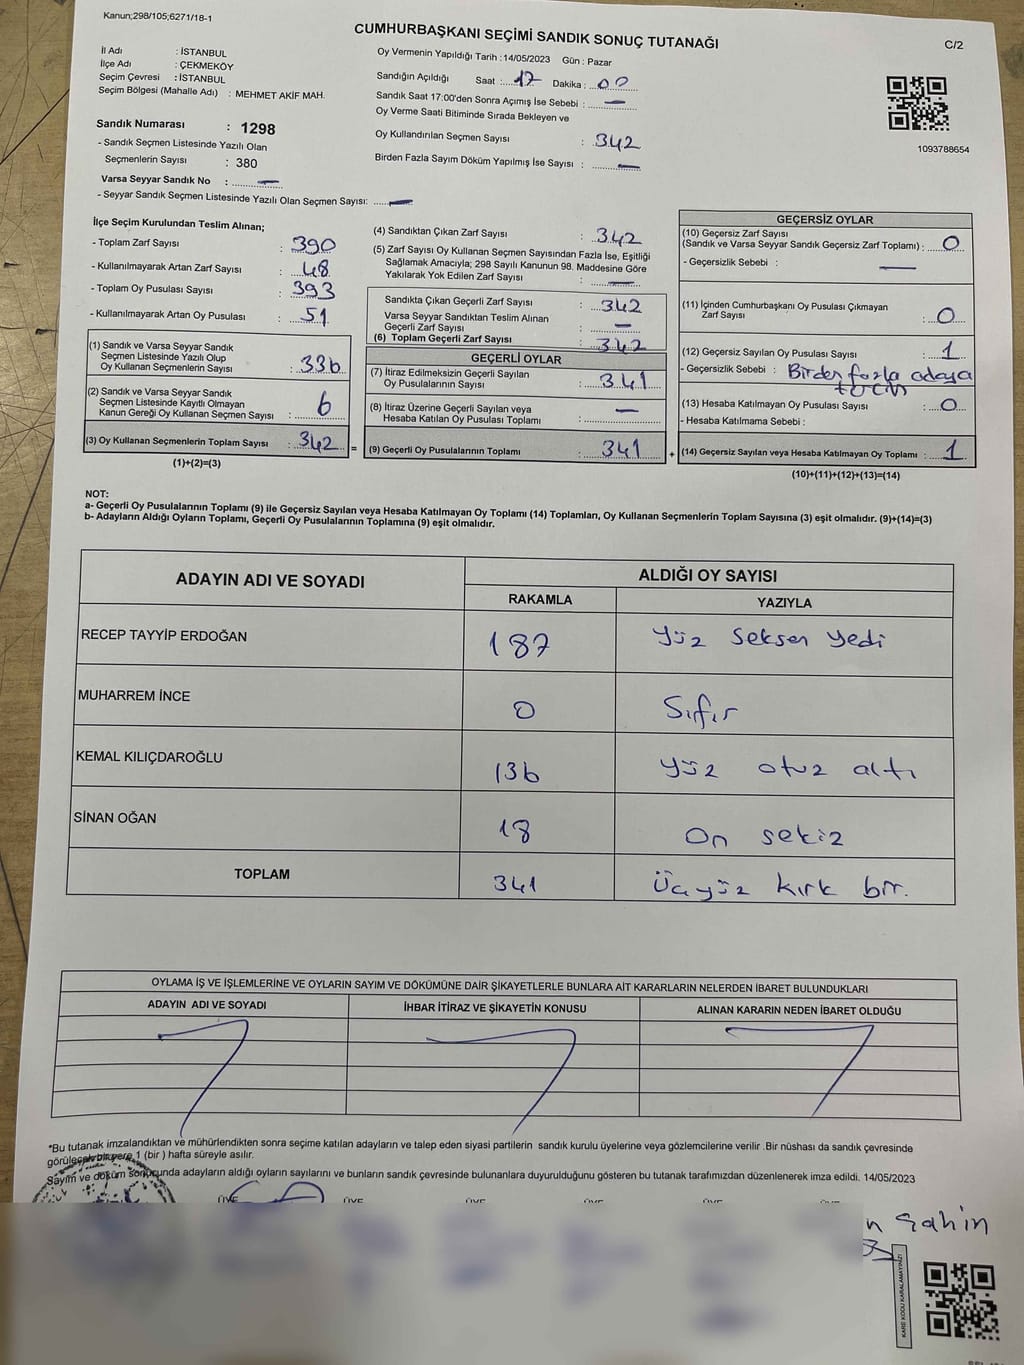 Kanun;298/105;6271/18-1
CUMHURBAŞKANI SEÇİMİ SANDIK SONUÇ TUTANAĞI
C/2
İl Adı : İSTANBUL
İlçe Adı : ÇEKMEKÖY
Seçim Çevresi : İSTANBUL
Seçim Bölgesi (Mahalle Adı) : MEHMET AKİF MAH.
Sandık Numarası : 1298
- Sandık Seçmen Listesinde Yazılı Olan
Seçmenlerin Sayısı : 380
Varsa Seyyar Sandık No : —
- Seyyar Sandık Seçmen Listesinde Yazılı Olan Seçmen Sayısı: —
Oy Vermenin Yapıldığı Tarih :14/05/2023 Gün : Pazar
Sandığın Açıldığı Saat : 17 Dakika : 00
Sandık Saat 17:00'den Sonra Açımış İse Sebebi : —
Oy Verme Saati Bitiminde Sırada Bekleyen ve
Oy Kullandırılan Seçmen Sayısı : 342
Birden Fazla Sayım Döküm Yapılmış İse Sayısı : —
1093788654
İlçe Seçim Kurulundan Teslim Alınan;
- Toplam Zarf Sayısı : 390
- Kullanılmayarak Artan Zarf Sayısı : 48
- Toplam Oy Pusulası Sayısı : 393
- Kullanılmayarak Artan Oy Pusulası : 51
(1) Sandık ve Varsa Seyyar Sandık
Seçmen Listesinde Yazılı Olup
Oy Kullanan Seçmenlerin Sayısı : 336
(2) Sandık ve Varsa Seyyar Sandık
Seçmen Listesinde Kayıtlı Olmayan
Kanun Gereği Oy Kullanan Seçmen Sayısı : 6
(3) Oy Kullanan Seçmenlerin Toplam Sayısı : 342 =
(1)+(2)=(3)
(4) Sandıktan Çıkan Zarf Sayısı : 342
(5) Zarf Sayısı Oy Kullanan Seçmen Sayısından Fazla İse, Eşitliği
Sağlamak Amacıyla; 298 Sayılı Kanunun 98. Maddesine Göre
Yakılarak Yok Edilen Zarf Sayısı : —
Sandıkta Çıkan Geçerli Zarf Sayısı : 342
Varsa Seyyar Sandıktan Teslim Alınan
Geçerli Zarf Sayısı : —
(6) Toplam Geçerli Zarf Sayısı : 342
GEÇERLİ OYLAR
(7) İtiraz Edilmeksizin Geçerli Sayılan
Oy Pusulalarının Sayısı : 341
(8) İtiraz Üzerine Geçerli Sayılan veya
Hesaba Katılan Oy Pusulası Toplamı : —
(9) Geçerli Oy Pusulalarının Toplamı : 341 +
GEÇERSİZ OYLAR
(10) Geçersiz Zarf Sayısı
(Sandık ve Varsa Seyyar Sandık Geçersiz Zarf Toplamı) : 0
- Geçersizlik Sebebi : —
(11) İçinden Cumhurbaşkanı Oy Pusulası Çıkmayan
Zarf Sayısı : 0
(12) Geçersiz Sayılan Oy Pusulası Sayısı : 1
- Geçersizlik Sebebi : Birden fazla adaya
(13) Hesaba Katılmayan Oy Pusulası Sayısı : 0
- Hesaba Katılmama Sebebi :
(14) Geçersiz Sayılan veya Hesaba Katılmayan Oy Toplamı : 1
(10)+(11)+(12)+(13)=(14)
NOT:
a- Geçerli Oy Pusulalarının Toplamı (9) ile Geçersiz Sayılan veya Hesaba Katılmayan Oy Toplamı (14) Toplamları, Oy Kullanan Seçmenlerin Toplam Sayısına (3) eşit olmalıdır. (9)+(14)=(3)
b- Adayların Aldığı Oyların Toplamı, Geçerli Oy Pusulalarının Toplamına (9) eşit olmalıdır.
ADAYIN ADI VE SOYADI
ALDIĞI OY SAYISI
RAKAMLA YAZIYLA
RECEP TAYYİP ERDOĞAN 187 Yüz Seksen Yedi
MUHARREM İNCE 0 Sıfır
KEMAL KILIÇDAROĞLU 136 Yüz otuz altı
SİNAN OĞAN 18 On sekiz
TOPLAM 341 Üçyüz kırk bir.
OYLAMA İŞ VE İŞLEMLERİNE VE OYLARIN SAYIM VE DÖKÜMÜNE DAİR ŞİKAYETLERLE BUNLARA AİT KARARLARIN NELERDEN İBARET BULUNDUKLARI
ADAYIN ADI VE SOYADI İHBAR İTİRAZ VE ŞİKAYETİN KONUSU ALINAN KARARIN NEDEN İBARET OLDUĞU
*Bu tutanak imzalandıktan ve mühürlendikten sonra seçime katılan adayların ve talep eden siyasi partilerin sandık kurulu üyelerine veya gözlemcilerine verilir .Bir nüshası da sandık çevresinde
görülecek bir yere 1 (bir ) hafta süreyle asılır.
Sayım ve döküm sonucunda adayların aldığı oyların sayılarını ve bunların sandık çevresinde bulunanlara duyurulduğunu gösteren bu tutanak tarafımızdan düzenlenerek imza edildi. 14/05/2023
ÜYE ÜYE ÜYE ÜYE ÜYE
n Şahin
KARE KODU KARALAMAYINIZ!